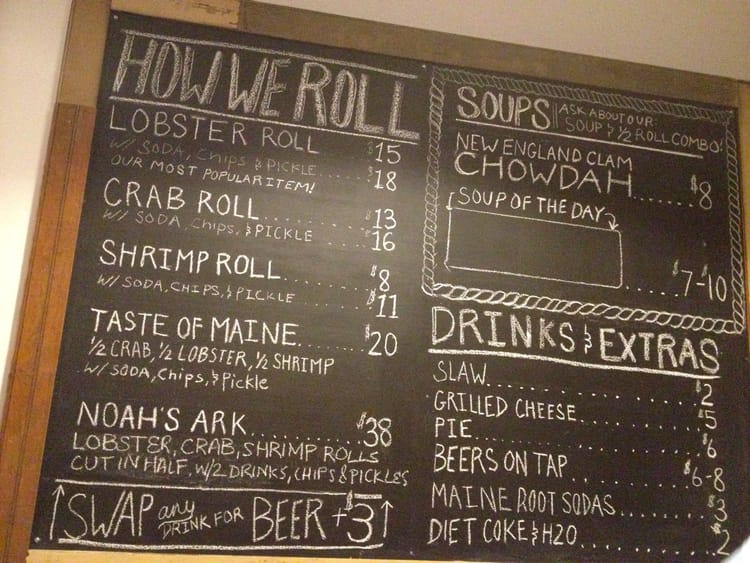 HOW WE ROLL
LOBSTER ROLL $15
W/ SODA, Chips & PICKLE $18
OUR MOST POPULAR ITEM!
CRAB ROLL........ $13
W/ SODA, Chips, & PICKLE.... $16
SHRIMP ROLL........ $8
W/ SODA, CHIPS, & PICKLE....... $11
TASTE OF MAINE....... $20
1/2 CRAB, 1/2 LOBSTER, 1/2 SHRIMP
W/ SODA, Chips, & Pickle
NOAH'S ARK........... $38
LOBSTER, CRAB, SHRIMP ROLLS
CUT IN HALF, W/2 DRINKS, CHIPS & PICKLES
↑SWAP any DRINK FOR BEER + $3↑
SOUPS ASK ABOUT OUR:
SOUP & 1/2 ROLL COMBO!
NEW ENGLAND CLAM
CHOWDAH...... $8
SOUP OF THE DAY
........ $7-10
DRINKS & EXTRAS
SLAW................ $2
GRILLED CHEESE......... $5
PIE.................. $6
BEERS ON TAP......... $6-8
MAINE ROOT SODAS...... $3
DIET COKE & H2O......... $2